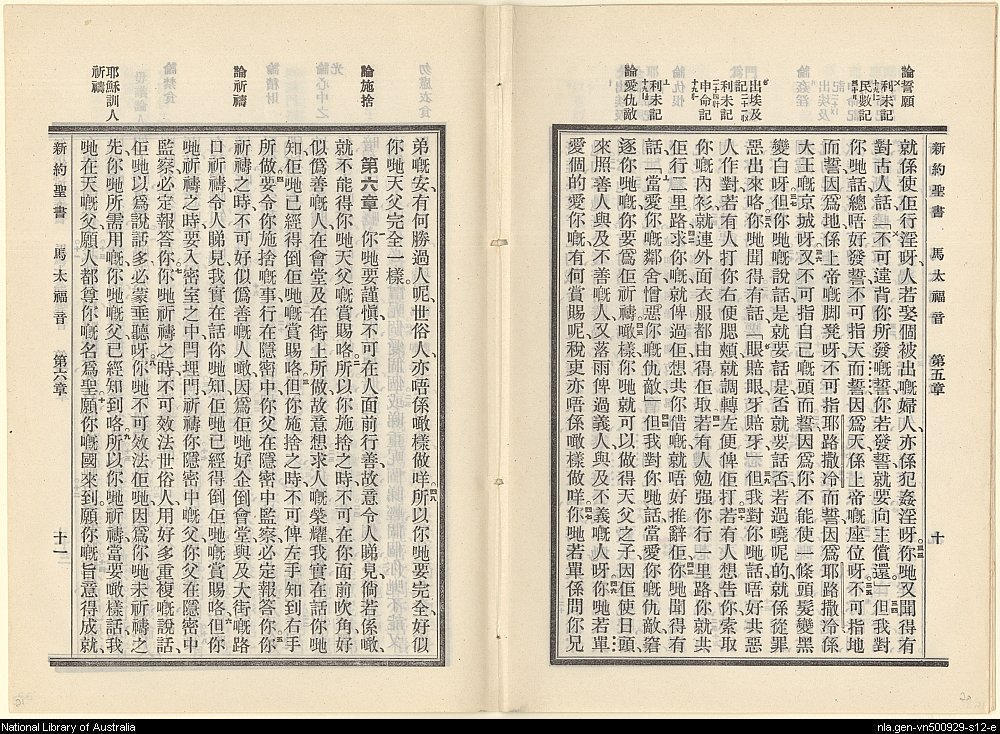 新約聖書 馬太福音 第五章 十
論誓願
利未記
民數記
出埃及記
利未記
申命記
利未記
論愛仇敵
就係使佢行淫呀、人若娶個被出嘅婦人、亦係犯姦淫呀、你哋又聞得有
對古人話、「不可違背你所發嘅誓、你若發誓、就要向主償還」、但我對
你哋話、總唔好發誓、不可指天而誓、因爲天係上帝嘅座位呀、不可指地
而誓、因爲地係上帝嘅脚凳呀、不可指耶路撒冷而誓、因爲耶路撒冷係
大王嘅京城呀、又不可指自己嘅頭而誓、因爲你不能使一條頭髮變黑
變白呀、但你哋嘅說話、是就要話是、否就要話否、若過嘵呢的、就係從罪
惡出來咯、你哋聞得有話、「眼賠眼、牙賠牙」、但我對你哋話、唔好共惡
人作對、若有人打你右便腮頰、就調轉左便俾佢打、若有人想告你、索取
你嘅內衫、就連外面衣服都由得佢取、若有人勉強你行一里路、你就共
佢行二里路、求你嘅就俾過佢、想共你借嘅就唔好推辭佢、你哋聞得有
話、「當愛你嘅鄰舍、憎惡你嘅仇敵」、但我對你哋話、當愛你嘅仇敵、窘
逐你哋嘅、你要爲佢祈禱、噉樣你哋就可以做得天父之子、因佢使日頭
來照善人與及不善嘅人、又落雨俾過義人與及不義嘅人呀、你哋若單
愛個的愛你嘅、有何賞賜呢、稅吏亦唔係噉樣做咩、你哋若單係問你兄
新約聖書 馬太福音 第六章 十一
論施捨
論祈禱
耶穌訓人祈禱
弟嘅安、有何勝過人呢、世俗人亦唔係噉樣做咩、所以你哋要完全、好似
你哋天父完全一樣、
第六章 你哋要謹愼、不可在人面前行善、故意令人睇見、倘若係噉、
就不能得你哋天父嘅賞賜咯、所以你施捨之時、不可在你面前吹角、好
似僞善嘅人、在會堂及在街上所做、故意想求人嘅榮耀、我實在話你哋
知、佢哋已經得倒佢哋嘅賞賜咯、但你施捨之時、不可俾左手知到右手
所做、要令你施捨嘅事、行在隱密中、你父在隱密中監察、必定報答你、你
祈禱之時、不可好似僞善嘅人噉、因爲佢哋好企倒會堂與及大街嘅路
口祈禱、令人睇見、我實在話你哋知、佢哋已經得倒佢哋嘅賞賜咯、但你
哋祈禱之時、要入密室之中、閂埋門、祈禱你隱密中嘅父、你父在隱密中
監察、必定報答你、你哋祈禱之時、不可效法世俗人、用好多重複嘅說話、
佢哋以爲說話多、必蒙垂聽呀、你哋不可效法佢哋、因爲你哋未祈禱之
先、你哋所需用嘅、你哋嘅父已經知到咯、所以你哋祈禱、當要噉樣話、我
哋在天嘅父、願人都尊你嘅名爲聖、願你嘅國來到、願你嘅旨意得成就
National Library of Australia
nla.gen-vn500929-s12-e